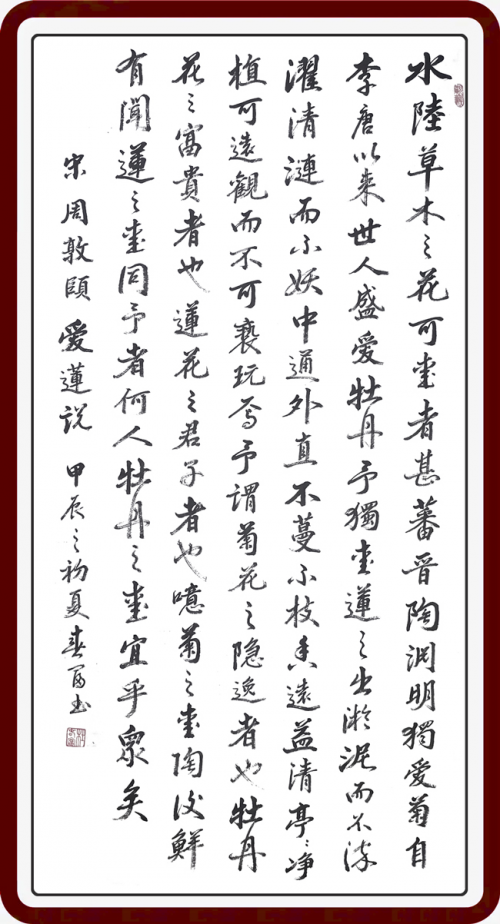 水陸草木之花可愛者甚蕃晉陶淵明獨愛菊自
李唐以来世人盛愛牡丹予獨愛蓮之出淤泥而不染
濯清漣而不妖中通外直不蔓不枝香遠益清亭〻净
植可遠觀而不可褻玩焉予謂菊花之隐逸者也牡丹
花之富貴者也蓮花之君子者也噫菊之愛陶后鮮
有聞蓮之愛同予者何人牡丹之愛宜乎眾矣
宋周敦頤愛蓮说甲辰之初夏春富书